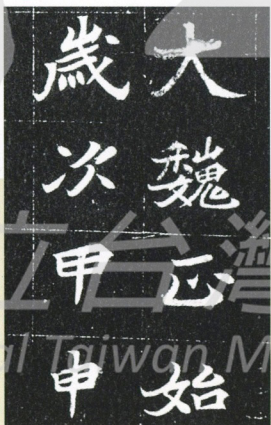 大魏正始
歲次甲申
立台灣
al Taiwan M